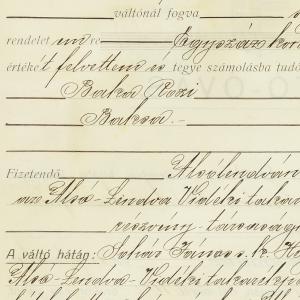 váltónál fogva
rendelet um re Egyszáz koro
értékét felvettem és tegye számolásba tudó
Baksa Rozi
Baksa. –
Fizetendő Alsólendván
az Alsó-Lendva Vidéki takar
részvény-társaság
A váltó hátán: Sohár János s. k. Ho
Alsó-Lendva-Vidéki takarékp